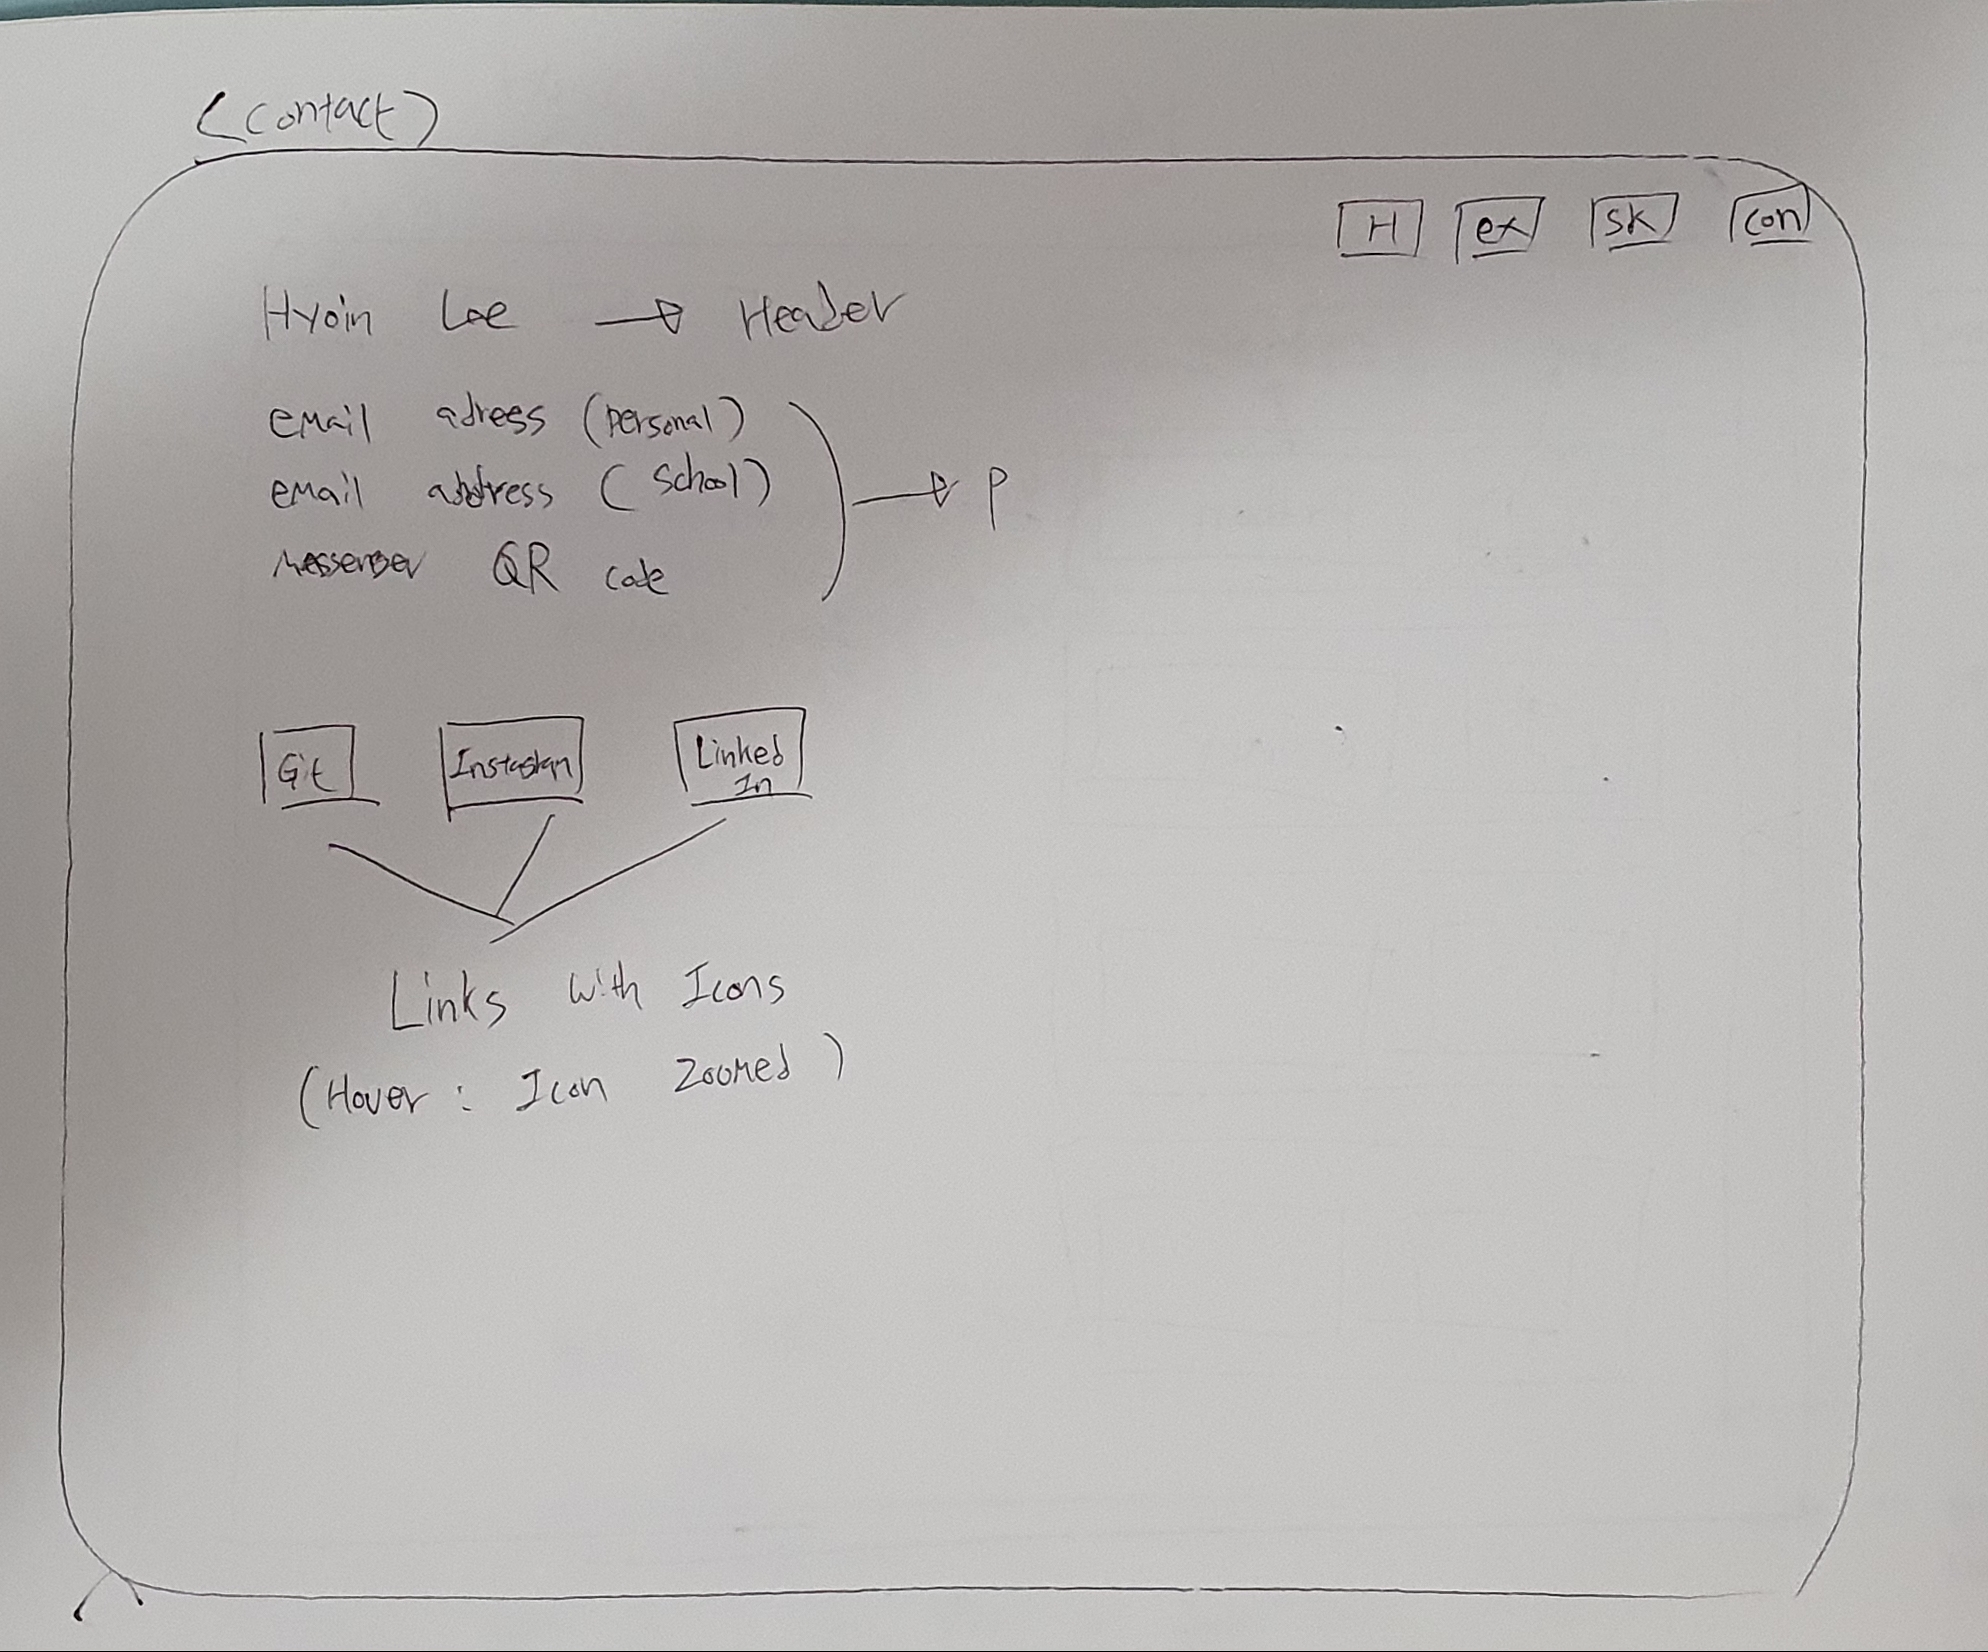 (Contact)
H ex SK Con
Hyoin Lee → Header
email adress (personal)
email address (school)
→ P
Messenger QR code
Git Instagram Linked In
Links with Icons
(Hover : Icon zoomed)